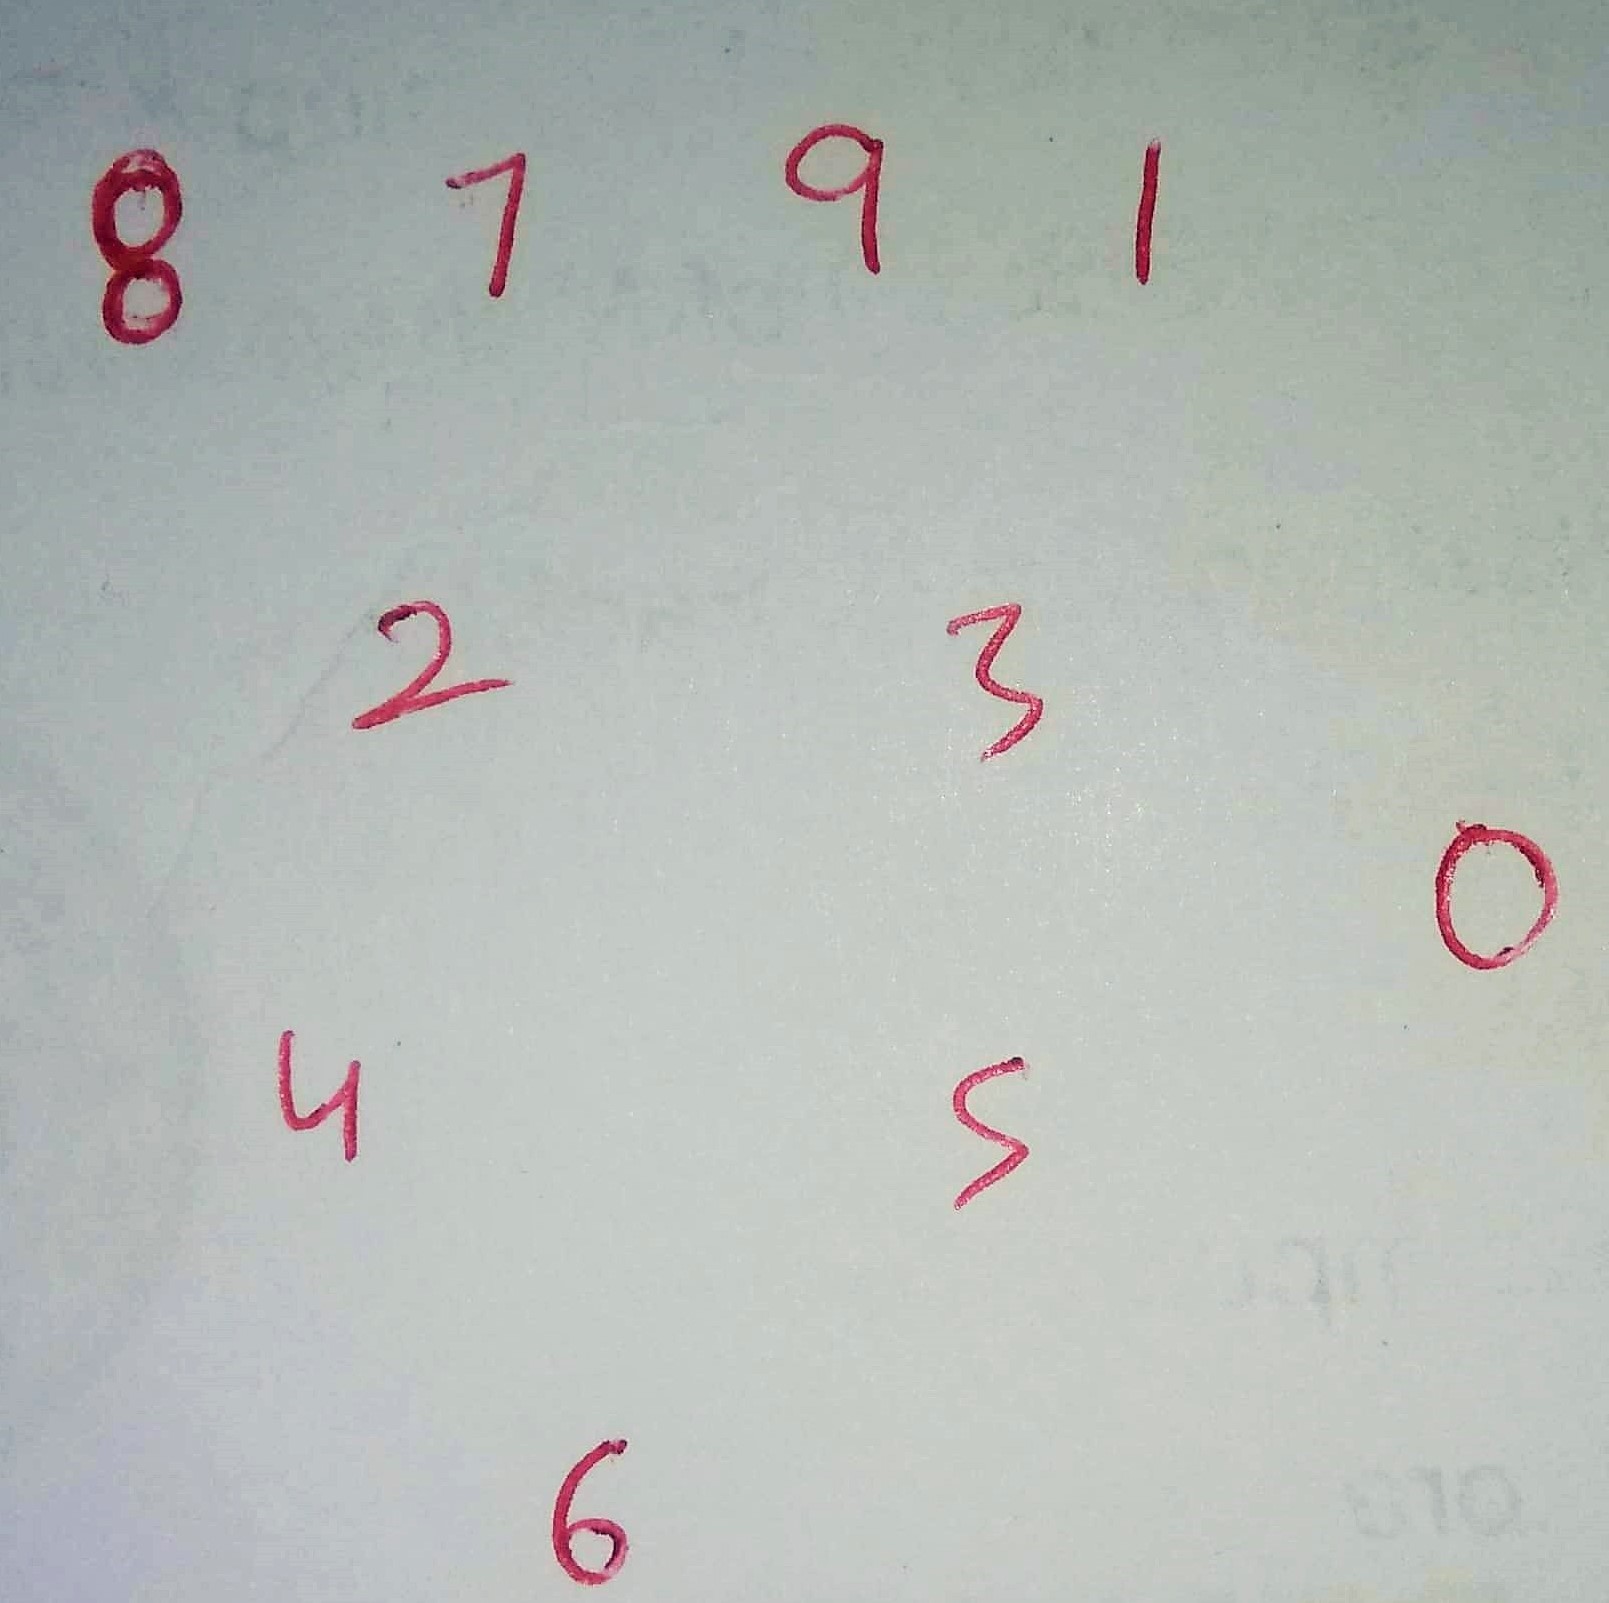 8 7 9 1
2 3
0
4 5
6